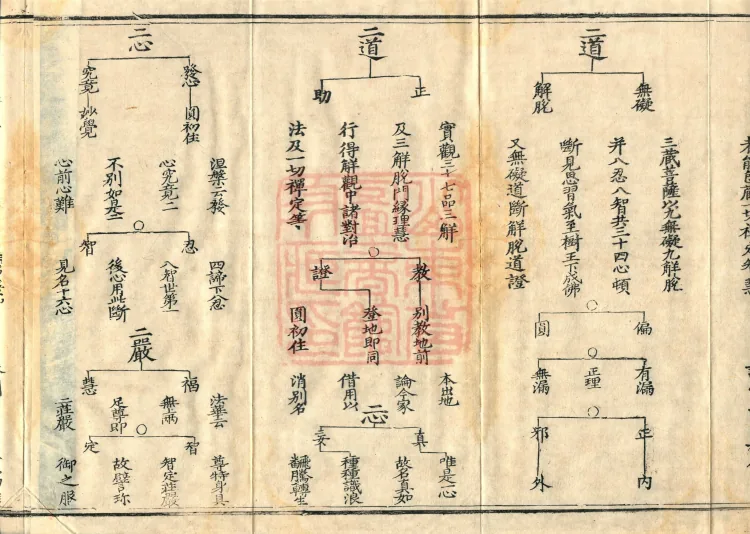 二道
無礙
解脫
三藏菩薩以九無礙九解脫
并八忍八智共三十四心頓
斷見思習氣至樹王下成佛
又無礙道斷解脫道證
偏
圓
有漏
正理
無漏
正
邪
內
外
二道
正
助
實觀三十七品三解
及三解脫門緣理慧
行得解觀中諸對治
法及一切禪定等
教
證
別教地前
登地即同
圓初住
本出地
論今家
借用以
消別名
二心
真
妄
唯是一心
故名真如
種種識浪
騰轉生
二心
發心
究竟
圓初住
妙覺
涅槃云發
心究竟二
不別如是二
心前心難
忍
智
四諦下忍
八智世第一
後心用此斷
見名十六心
二嚴
福
慧
法華云
無兩
足尊即
二莊嚴
智
定
尊特身具
智定莊嚴
故譬珍
御之服